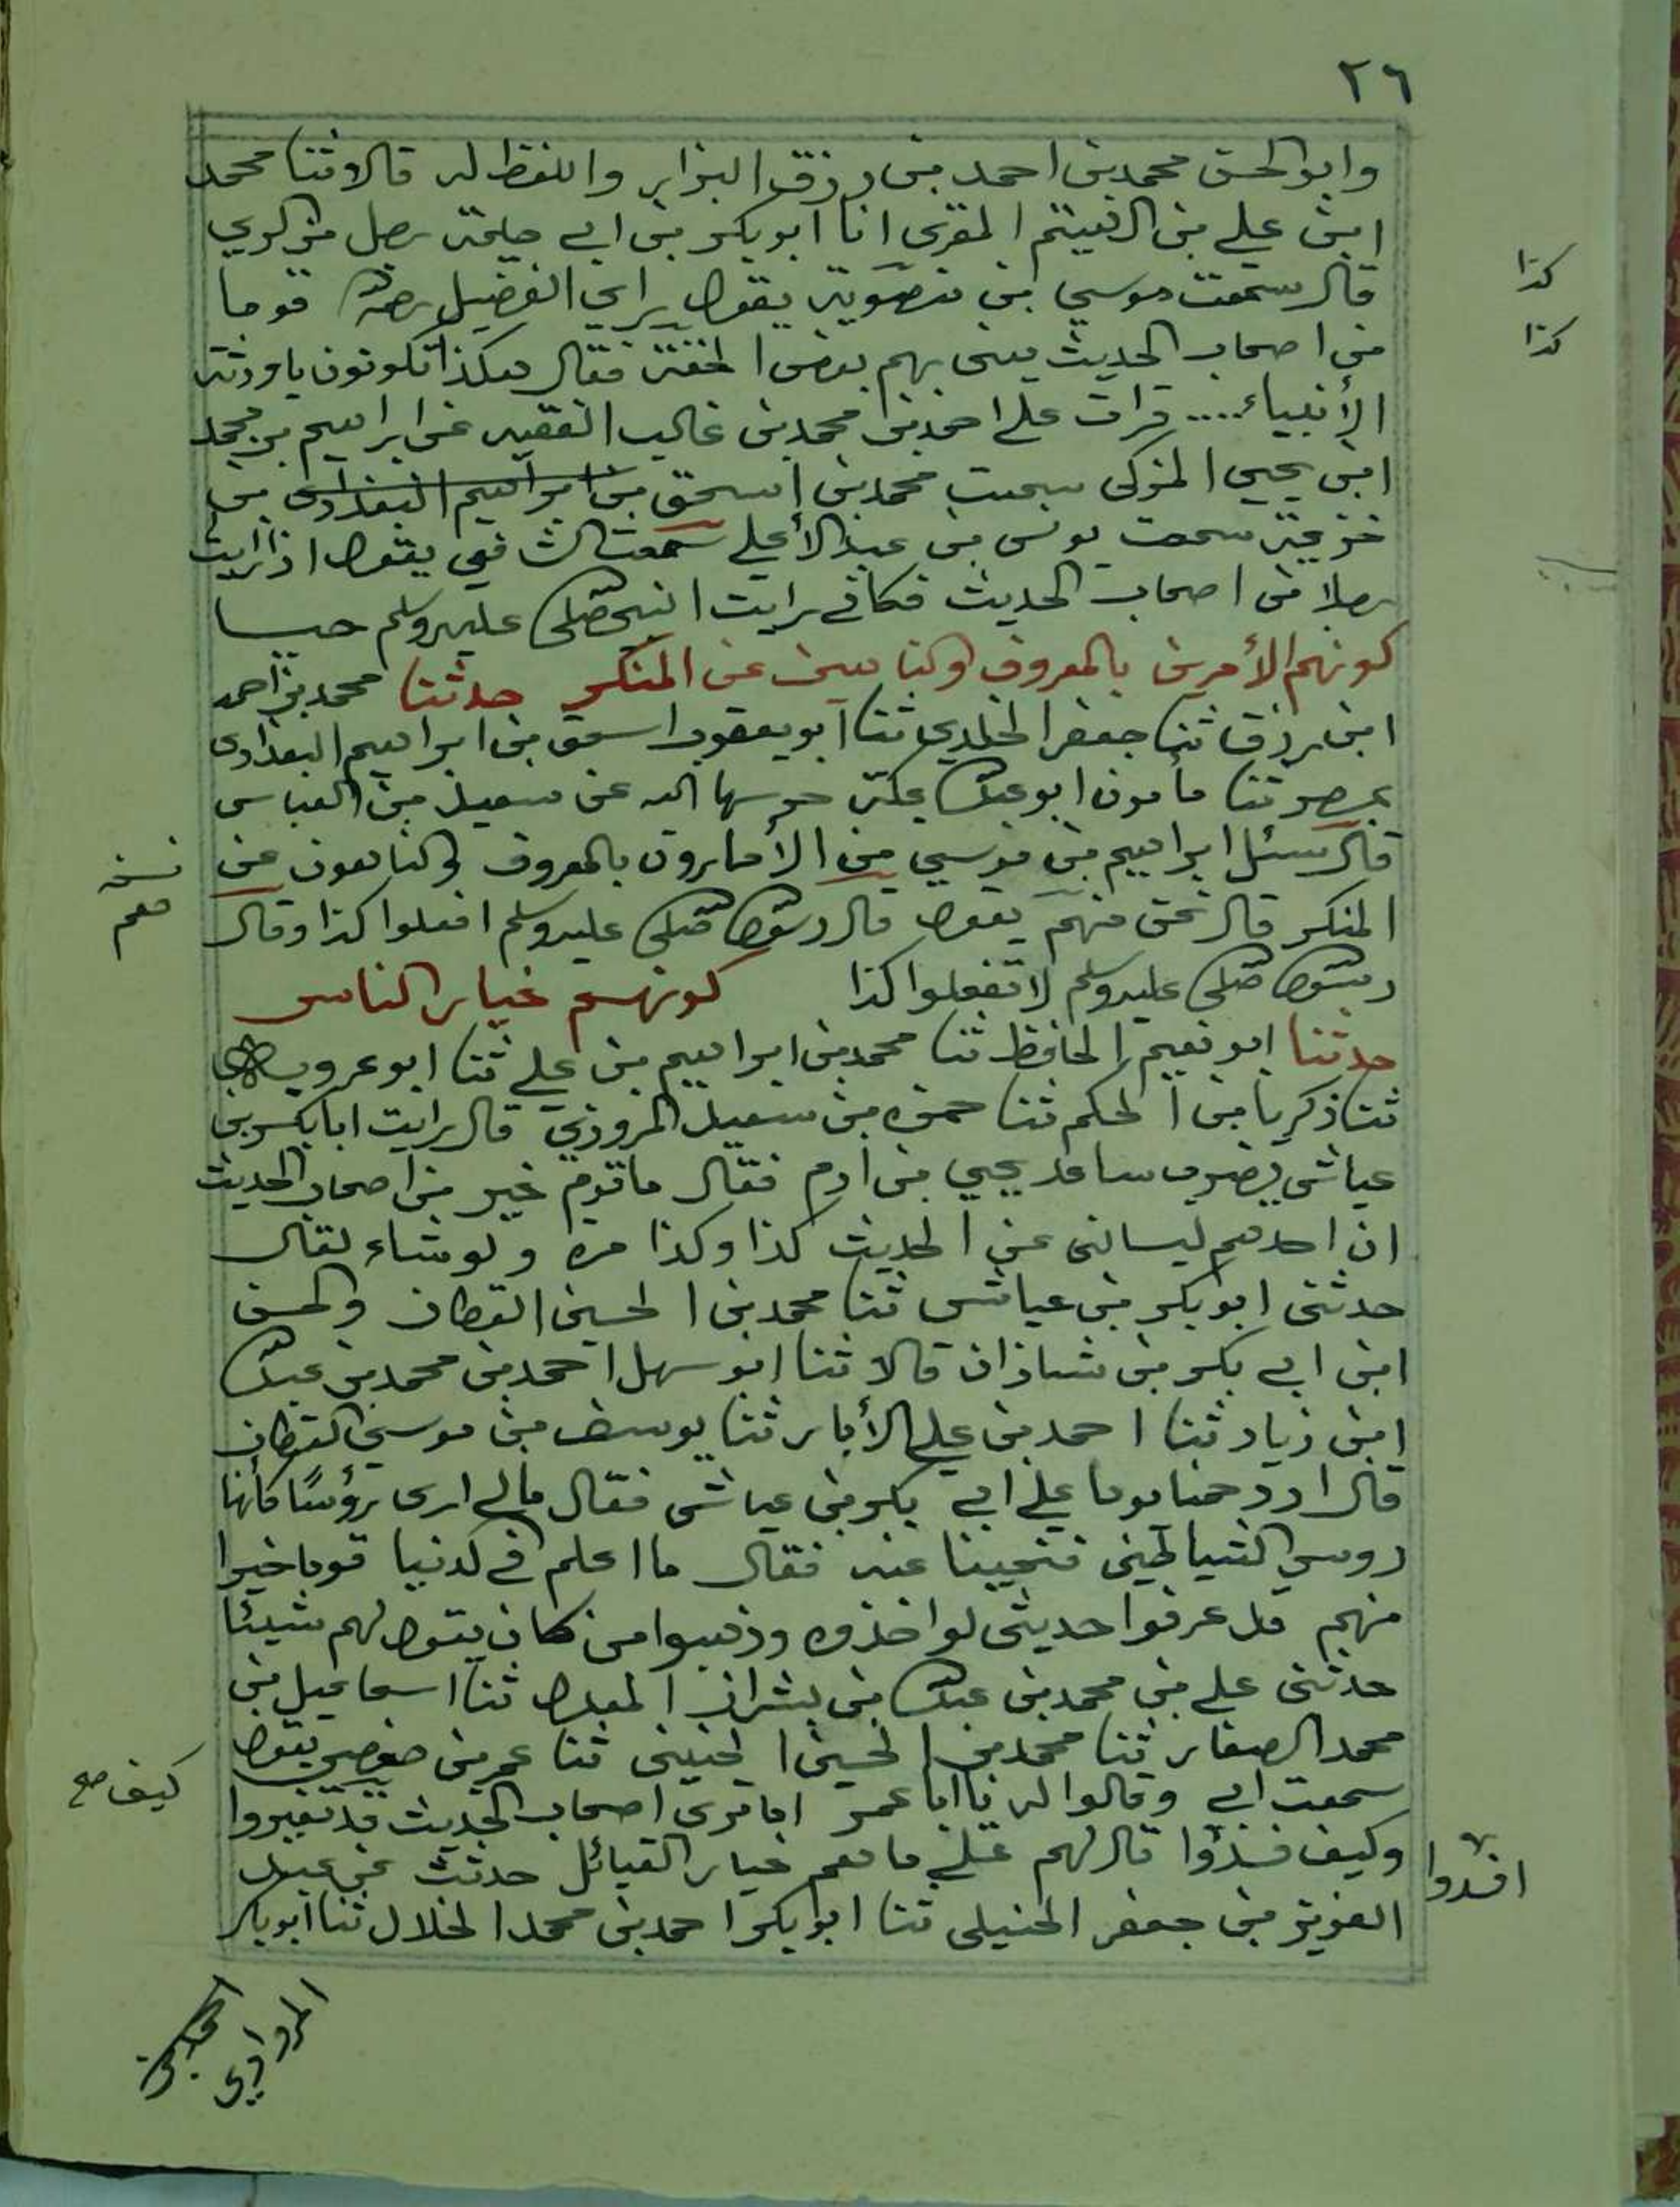 ٢٦
وابو الحسن محمد بن احمد بن رزق البزاز واللفظ له قالا ثنا محمد
ابن علي بن الهيثم المقرى انا ابو بكر بن ابي خيثمة رجل من الري
قال سمعت موسى بن نصر يقول راى الفضيل رجلا قوما
من اصحاب الحديث بعض الخفة فقال هكذا تكونون يا ورثة
الأنبياء.... قرات على احمد بن محمد بن غالب الفقيه عن ابراهيم بن محمد
ابن يحيى المزكى سمعت محمد بن اسحق بن ابراهيم البغدادى بن
خزيمة سمعت يونس بن عبد الأعلى سمعت الشافعي يقول اذا رايت
رجلا من اصحاب الحديث فكاني رايت النبي صلى الله عليه وسلم حيا
كونهم الأمرين بالمعروف والناهين عن المنكر حدثنا محمد بن احمد
ابن رزق ثنا جعفر الخلدي ثنا ابو يعقوب اسحق بن ابراهيم البغدادى
بمصر ثنا مأمون ابو عبد الله بمكة حرسها الله عن سعيد بن العباس
قال سئل ابراهيم بن موسى من الأمارون بالمعروف والناهون عن
المنكر قال نحن منهم يقول قال رسول الله صلى الله عليه وسلم افعلوا كذا وقال
رسول الله صلى الله عليه وسلم لا تفعلوا كذا كونهم خيار الناس
حدثنا ابو نعيم الحافظ ثنا محمد بن ابراهيم بن علي ثنا ابو عروبة
ثنا زكريا بن الحكم ثنا حمزه بن سعيد المروزي قال رايت ابا بكر بن
عياش يضرب ساعد يحيى بن ادم فقال ما قوم خير من اصحاب الحديث
ان احدهم ليسالنى عن الحديث كذا وكذا مره ولو شاء لقال
حدثنى ابو بكر بن عياش ثنا محمد بن الحسين القطان والحسن
ابن ابي بكر بن شاذان قالا ثنا ابو سهل احمد بن محمد بن عبد الله
ابن زياد ثنا احمد بن علي الأبار ثنا يوسف بن موسى القطان
قال ازدحمنا يوما على ابي بكر بن عياش فقال مالي ارى رؤسًا كأنها
روس الشياطين فتحيينا عنه فقال ما اعلم في الدنيا قوما خيرا
منهم قد عرفوا حديثى لو اخذوه وذهبوا من كان يقول لهم شيئا
حدثنى علي بن محمد بن عبد الله بن بشران المعدل ثنا اسماعيل بن
محمد الصفار ثنا محمد بن الحسين الحنينى ثنا عمر بن حفص يقول
سمعت ابي وقالوا له يا ابا عمر اما ترى اصحاب الحديث قد تغيروا
وكيف فسدوا قال لهم على ما معهم خيار القبائل حدثت عن عبد
العزيز بن جعفر الحنبلى ثنا ابو بكر احمد بن محمد الخلال ثنا ابو بكر
كذا
كذا
نسخه
كيف صح
افسدوا